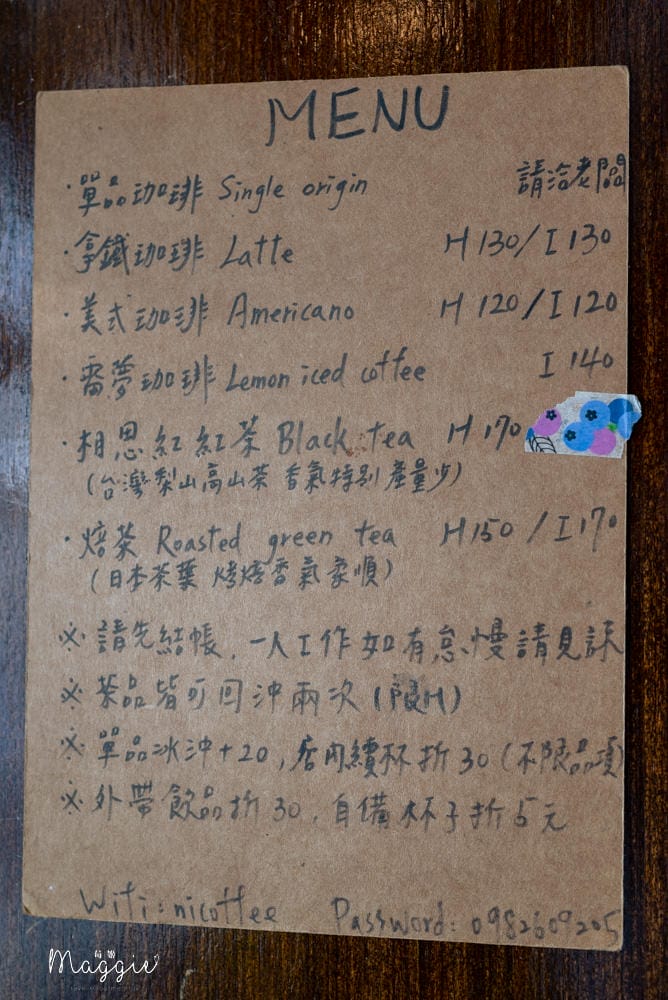 MENU
·單品咖啡 Single origin 請洽老闆
·拿鐵咖啡 Latte H 130/I 130
·美式咖啡 Americano H 120/I 120
·西西里咖啡 Lemon iced coffee I 140
·相思紅紅茶 Black tea H 170
(台灣梨山高山茶 香氣特別 產量少)
·焙茶 Roasted green tea H 150 / I 170
(日本茶葉 烤焙香氣柔順)
※請先結帳,一人工作如有怠慢請見諒
※茶品皆可回沖兩次(限H)
※單品冰沖+20,店內續杯折30(不限品項)
※外帶飲品折30,自備杯子折5元
Wifi: nicoffee Password: 0982609205
莓姬
Maggie